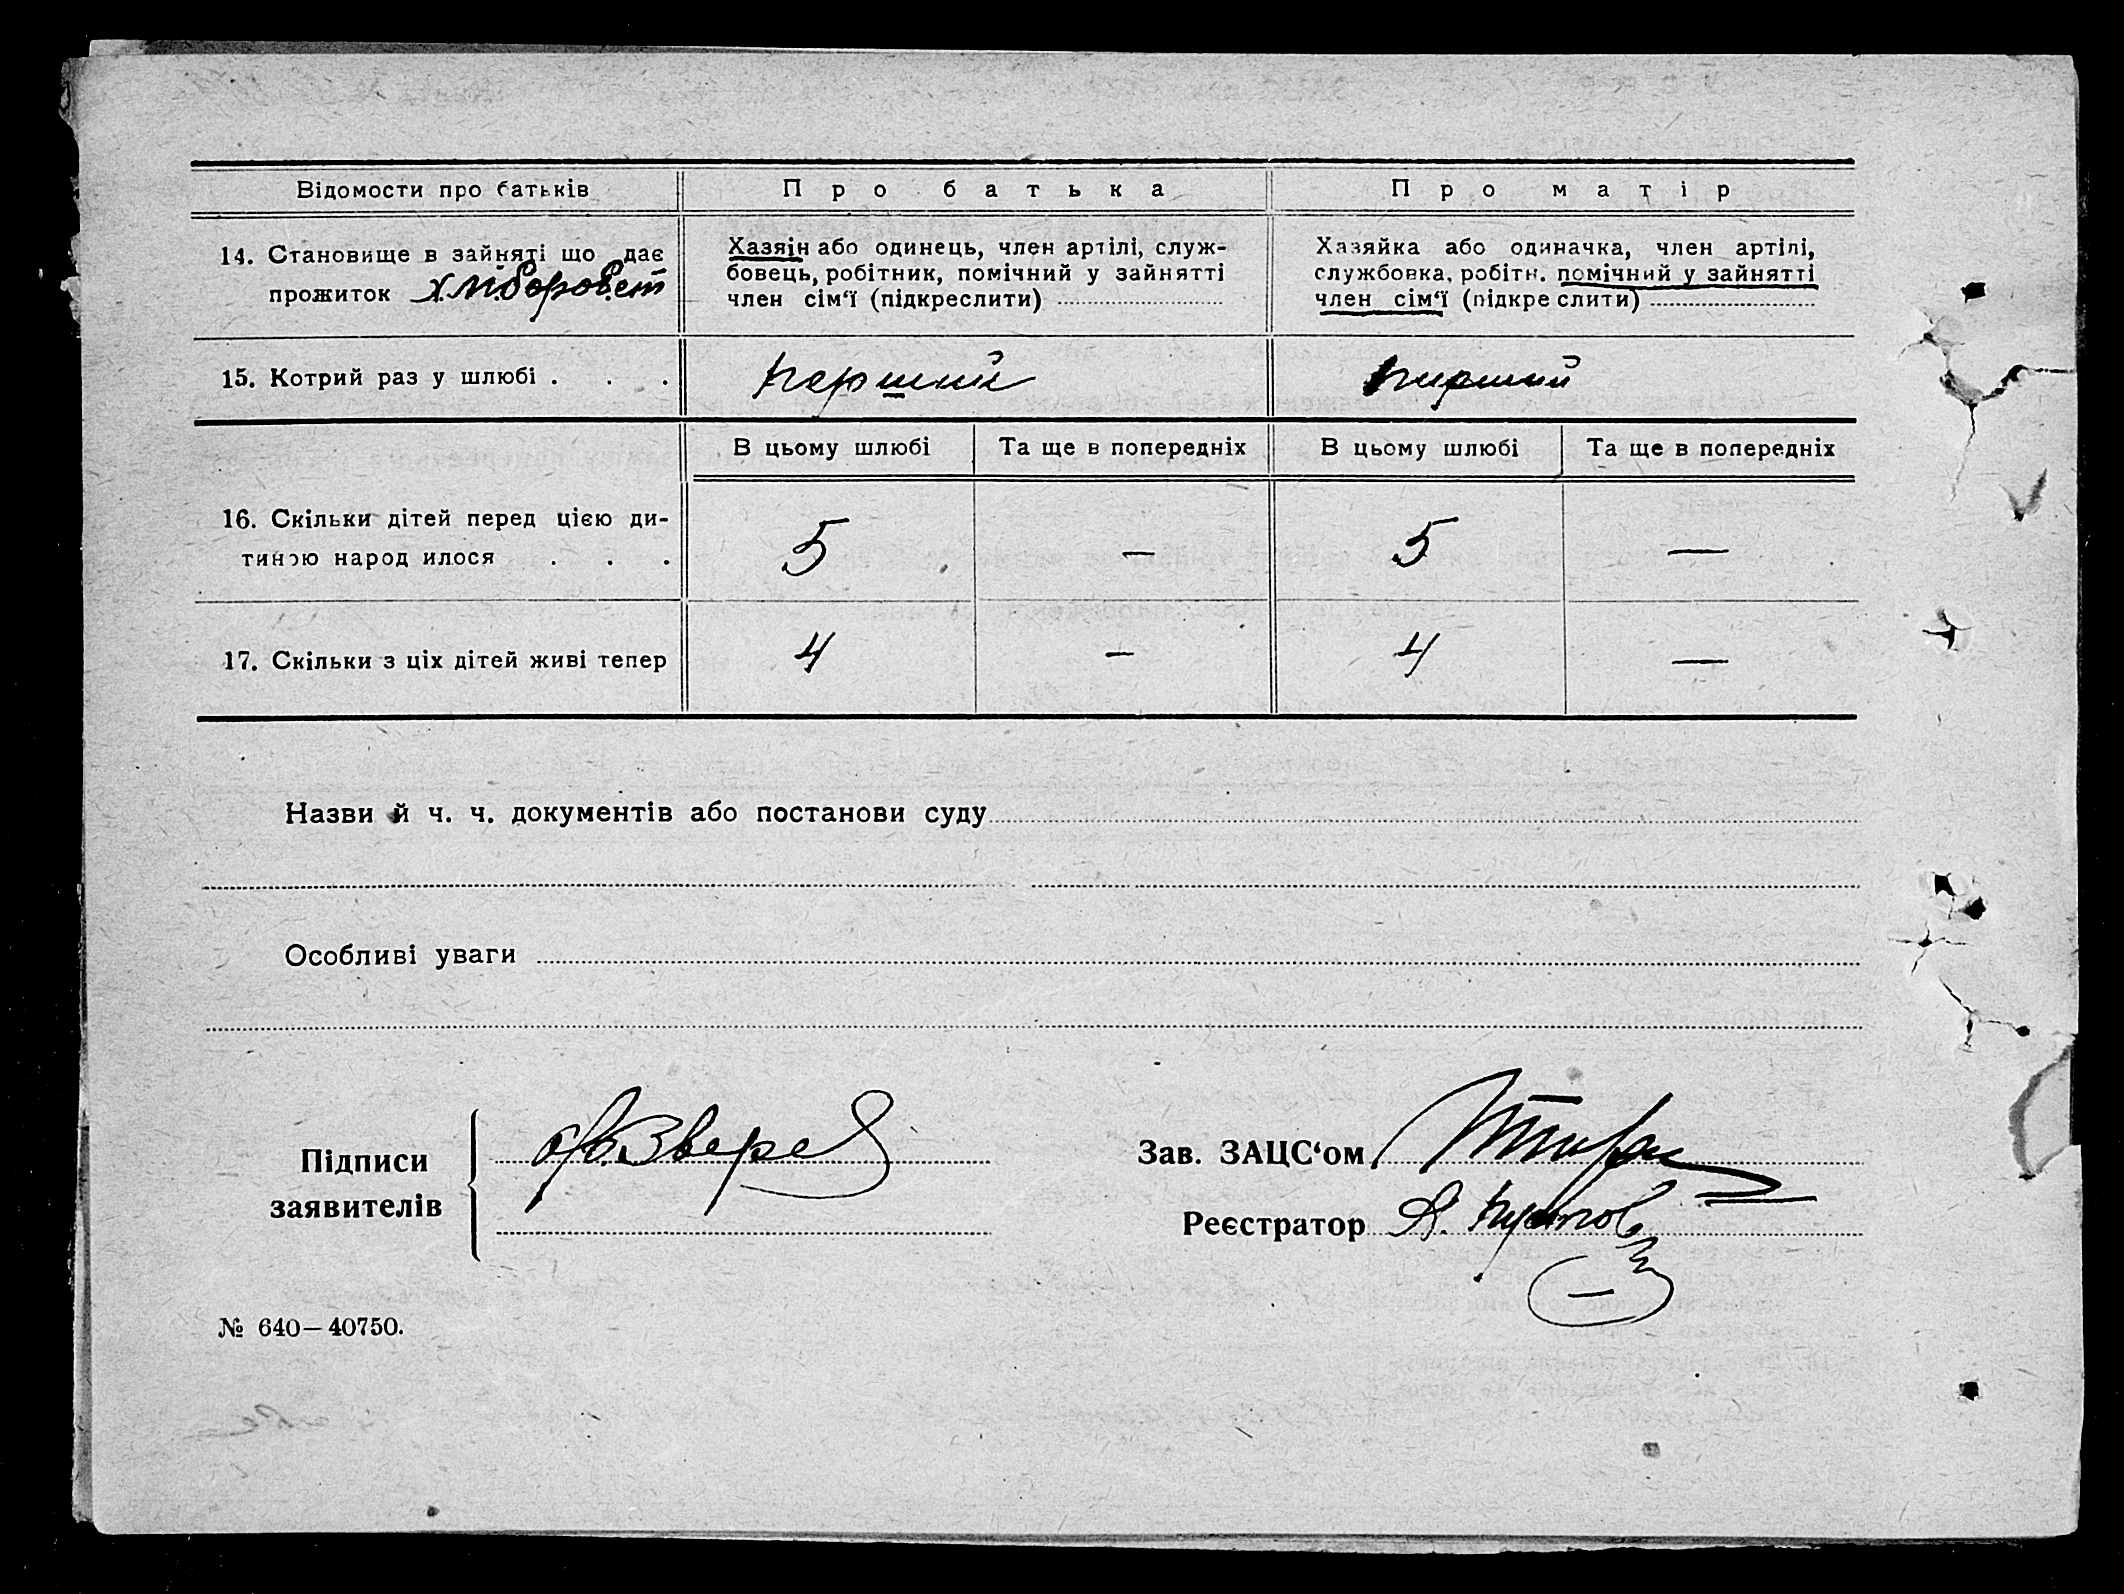 Відомости про батьків Про батька Про матір
14. Становище в зайняті що дає
прожиток
Хазяін або одинець, член артілі, служ-
бовець, робітник, помічний у зайнятті
член сім'ї (підкреслити)
Хазяйка або одиначка, член артілі,
службовка, робітн. помічний у зайнятті
член сім'ї (підкреслити)
15. Котрий раз у шлюбі . . . перший перший
В цьому шлюбі Та ще в попередніх В цьому шлюбі Та ще в попередніх
16. Скільки дітей перед цією ди-
тиною народилося . . . 5 — 5 —
17. Скільки з ціх дітей живі тепер 4 — 4 —
Назви й ч. ч. документів або постанови суду
Особливі уваги
Підписи
заявителів
Зав. ЗАЦС'ом
Реєстратор
№ 640—40750.